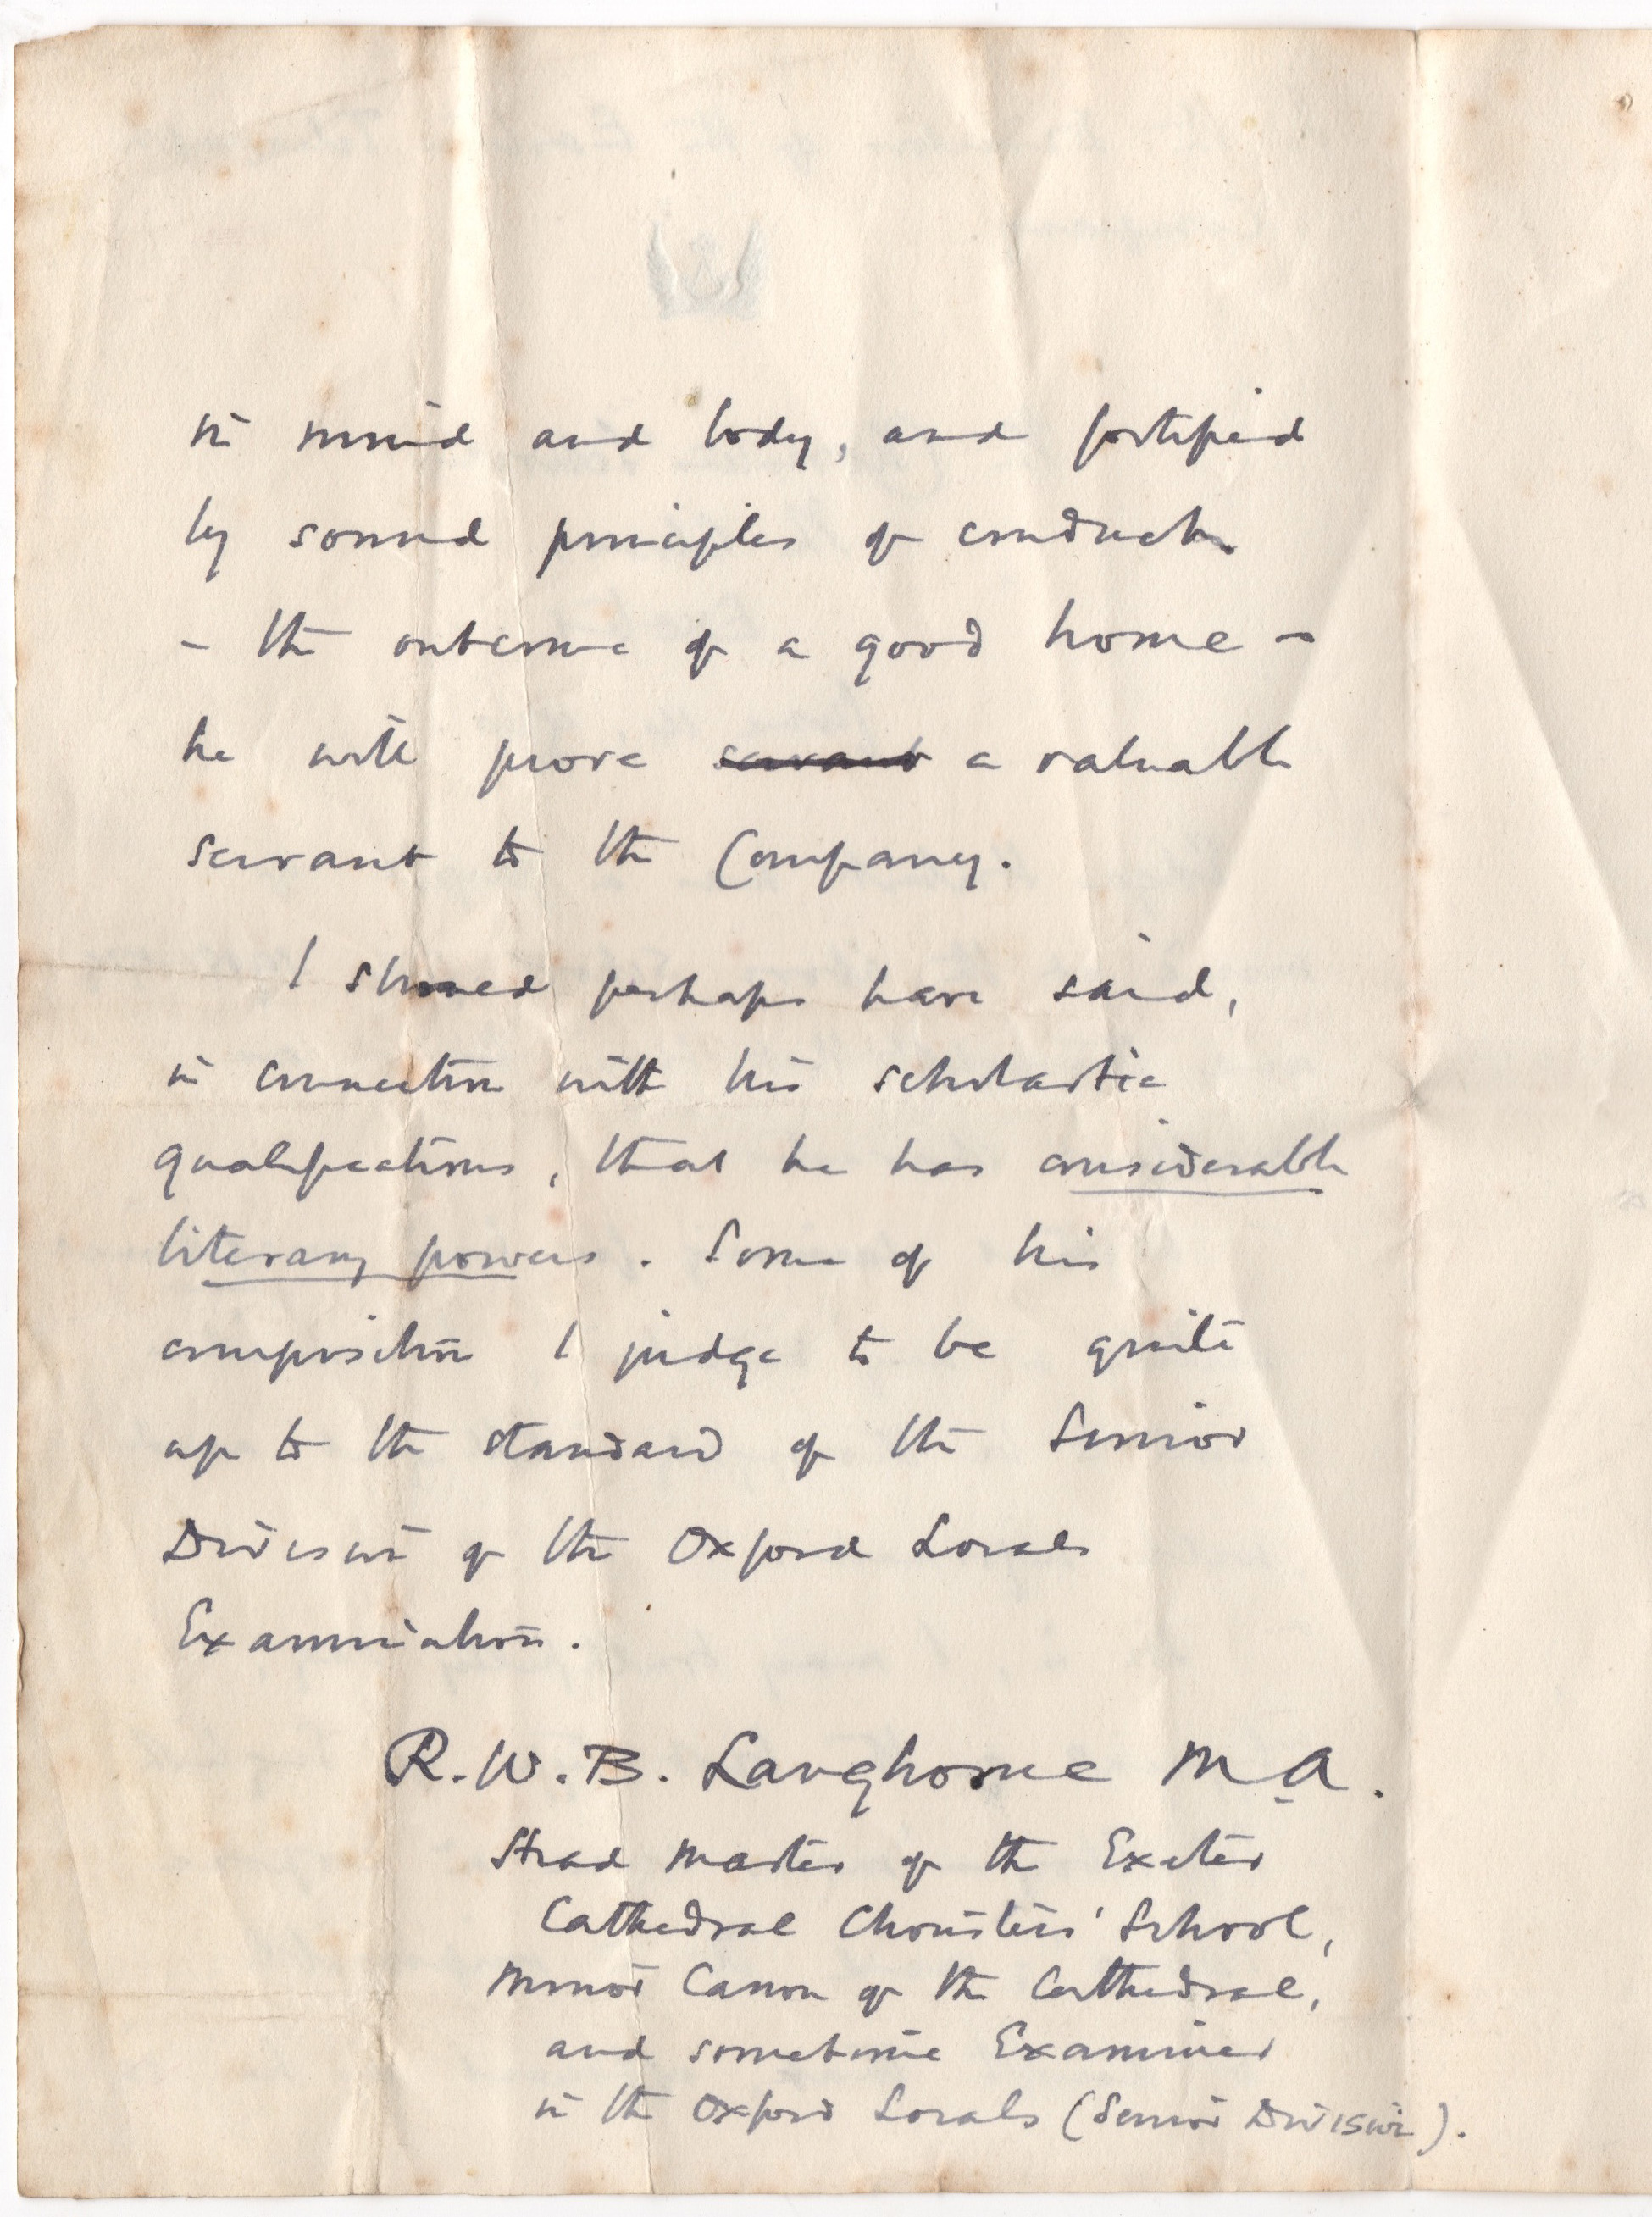 in mind and body, and fortified
by sound principles of conduct
- the outcome of a good home -
he will prove servant a valuable
servant to the Company.
I should perhaps have said,
in connection with his scholastic
qualifications, that he has considerable
literary powers. Some of his
composition I judge to be quite
up to the standard of the Senior
Division of the Oxford Locals
Examination.
R.W.B. Langhorne M A.
Head Master of the Exeter
Cathedral Choristers' School,
Minor Canon of the Cathedral,
and sometime Examiner
in the Oxford Locals (Senior Division).